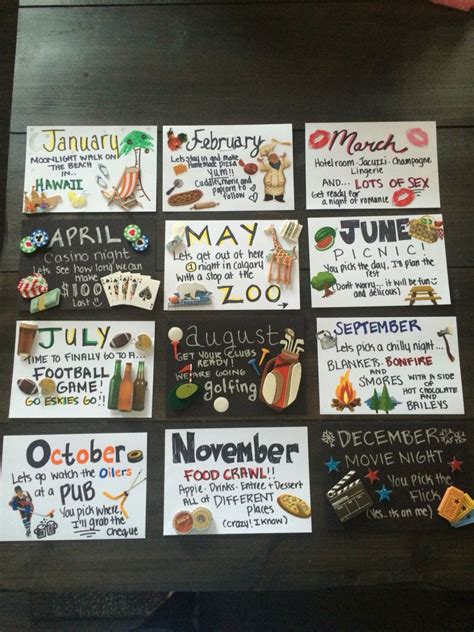 January
MOONLIGHT WALK ON
THE BEACH
IN...
HAWAII
February
Lets stay in and make
homemade Pizza
Yum!!
Cuddles, movie and
popcorn to
follow
March
Hotel room - Jacuzzi - Champagne
Lingerie
AND... LOTS OF SEX
Get ready for
a night of romance
APRIL
Casino night
Lets See how long we can
make
$100
Last
MAY
Lets get out of here
1 night in calgary
with a stop at
the
ZOO
JUNE
PICNIC!
You pick the day, I'll plan the
rest
(Don't worry... it will be fun
and delicious)
JULY
TIME TO FINALLY GO TO A...
FOOTBALL
GAME!
GO ESKIES GO!!
august
GET YOUR CLUBS
READY!
WE ARE GOING
golfing
SEPTEMBER
Lets pick a chilly night...
BLANKETS, BONFIRE
AND
SMORES WITH A SIDE
OF
HOT CHOCOLATE
AND
BAILEYS
October
Lets go watch the Oilers
at a
PUB
You pick where,
I'll grab the
Cheque
November
FOOD CRAWL!!
Apple. Drinks. Entree + Dessert
ALL at DIFFERENT
places
(crazy! I know)
DECEMBER
MOVIE NIGHT
You pick the
Flick
(Yes..its on me)